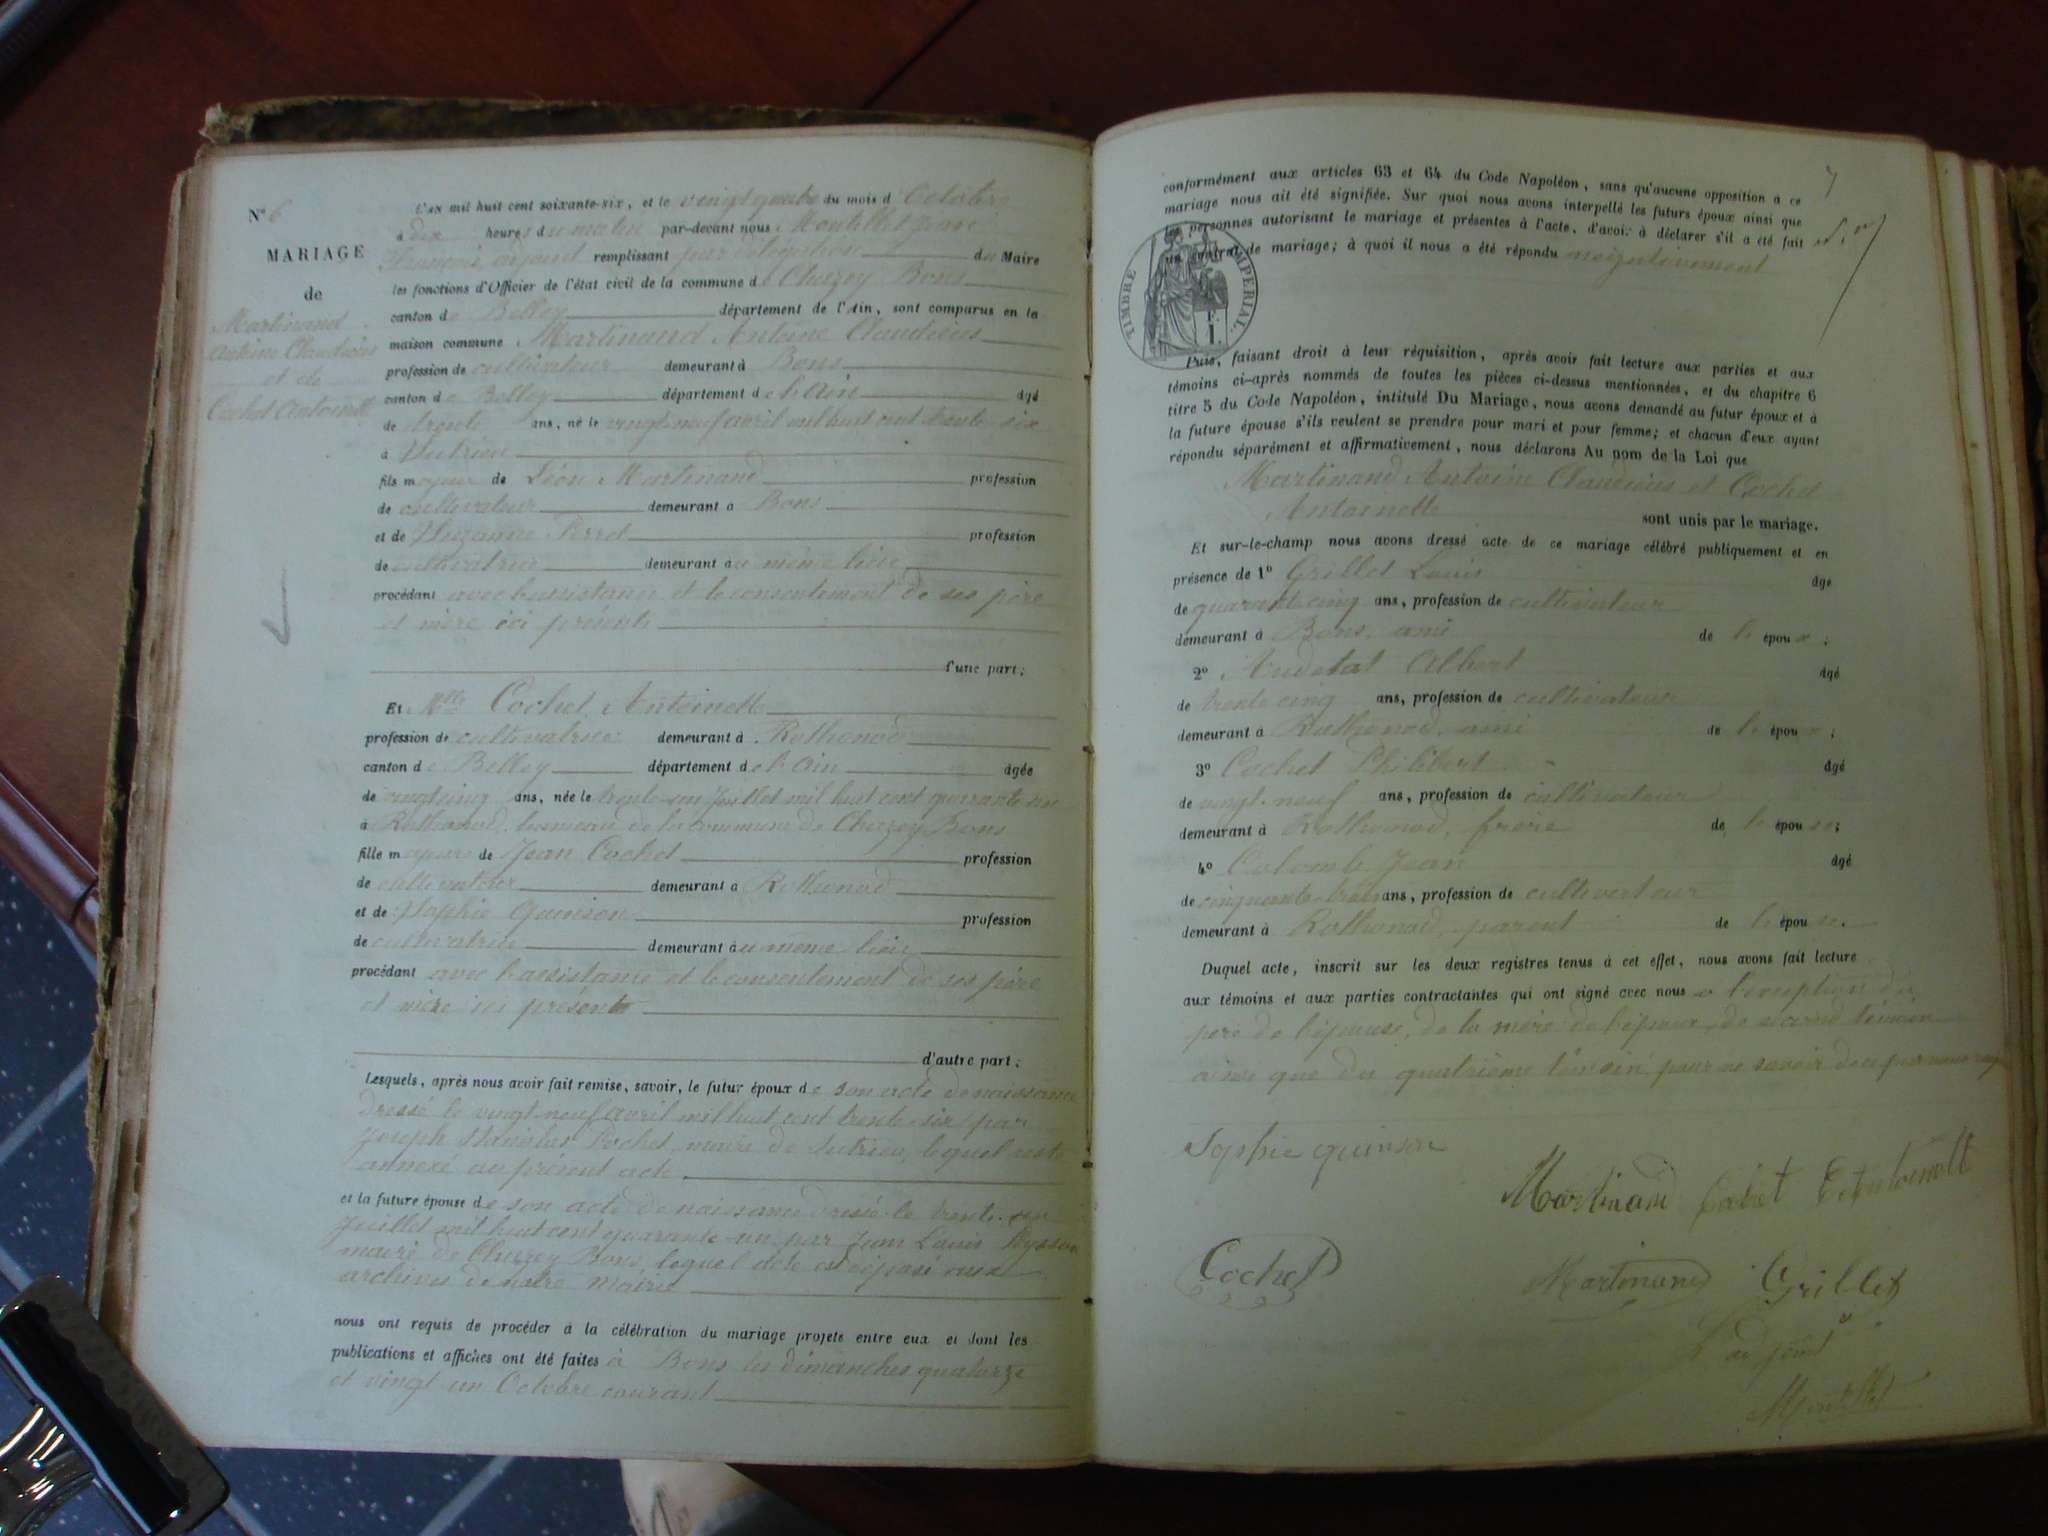 N° 6
MARIAGE
de
Martinand
Antoine Claudius
et de
Cochet Antoinette
L'AN mil huit cent soixante-six, et le vingt quatre du mois d'Octobre
à dix heures du matin par-devant nous Montillet
François, adjoint remplissant par délégation du Maire
les fonctions d'Officier de l'état civil de la commune de Chazey Bons
canton de Belley département de l'Ain, sont comparus en la
maison commune, Martinand Antoine Claudius
profession de cultivateur demeurant à Bons
canton de Belley département de l'Ain âgé
de trente ans, né le vingt neuf avril mil huit cent trente six
à Lutrieu
fils majeur de Léon Martinand profession
de cultivateur demeurant à Bons
et de Suzanne Perret profession
de cultivatrice demeurant au même lieu
procédant avec l'assistance et le consentement de ses père
et mère ici présents
d'une part;
Et Mlle Cochet Antoinette
profession de cultivatrice demeurant à Rothonod
canton de Belley département de l'Ain âgée
de vingt cinq ans, née le trente-un Juillet mil huit cent quarante un
à Rothonod, hameau de la commune de Chazey Bons
fille majeure de Jean Cochet profession
de cultivateur demeurant à Rothonod
et de Sophie Quinson profession
de cultivatrice demeurant au même lieu
procédant avec l'assistance et le consentement de ses père
et mère ici présents
d'autre part;
Lesquels, après nous avoir fait remise, savoir, le futur époux de son acte de naissance
dressé le vingt-neuf avril mil huit cent trente-six par
Joseph Stanislas Cochet, maire de Lutrieu, lequel reste
annexé au présent acte
et la future épouse de son acte de naissance dressé le trente-un
Juillet mil huit cent quarante-un par Jean Louis
maire de Chazey Bons, lequel acte est déposé aux
archives de notre mairie
nous ont requis de procéder à la célébration du mariage projeté entre eux et dont les
publications et affiches ont été faites à Bons les dimanches quatorze
et vingt un Octobre courant
7
conformément aux articles 63 et 64 du Code Napoléon, sans qu'aucune opposition à ce
mariage nous ait été signifiée. Sur quoi nous avons interpellé les futurs époux ainsi que
les personnes autorisant le mariage et présentes à l'acte, d'avoir à déclarer s'il a été fait
un contrat de mariage; à quoi il nous a été répondu négativement
TIMBRE IMPERIAL
Puis, faisant droit à leur réquisition, après avoir fait lecture aux parties et aux
témoins ci-après nommés de toutes les pièces ci-dessus mentionnées, et du chapitre 6
titre 5 du Code Napoléon, intitulé Du Mariage, nous avons demandé au futur époux et à
la future épouse s'ils veulent se prendre pour mari et pour femme; et chacun d'eux ayant
répondu séparément et affirmativement, nous déclarons Au nom de la Loi que
Martinand Antoine Claudius et Cochet
Antoinette sont unis par le mariage.
Et sur-le-champ nous avons dressé acte de ce mariage célébré publiquement et en
présence de 1° Grillet Louis âgé
de quarante cinq ans, profession de cultivateur
demeurant à Bons, ami de l'époux;
2° Audetat Albert âgé
de trente cinq ans, profession de cultivateur
demeurant à Rothonod, ami de l'époux;
3° Cochet Philibert âgé
de vingt-neuf ans, profession de cultivateur
demeurant à Rothonod, frère de l'épouse;
4° Colomb Jean âgé
de cinquante-trois ans, profession de cultivateur
demeurant à Rothonod, parent de l'épouse.
Duquel acte, inscrit sur les deux registres tenus à cet effet, nous avons fait lecture
aux témoins et aux parties contractantes qui ont signé avec nous à l'exception du
père de l'épouse, de la mère de l'époux, de second témoin
ainsi que du quatrième témoin pour ne savoir
Sophie quinson
Martinand Cochet Antoinette
Cochet Martinand Grillet
L'adjoint
Montillet